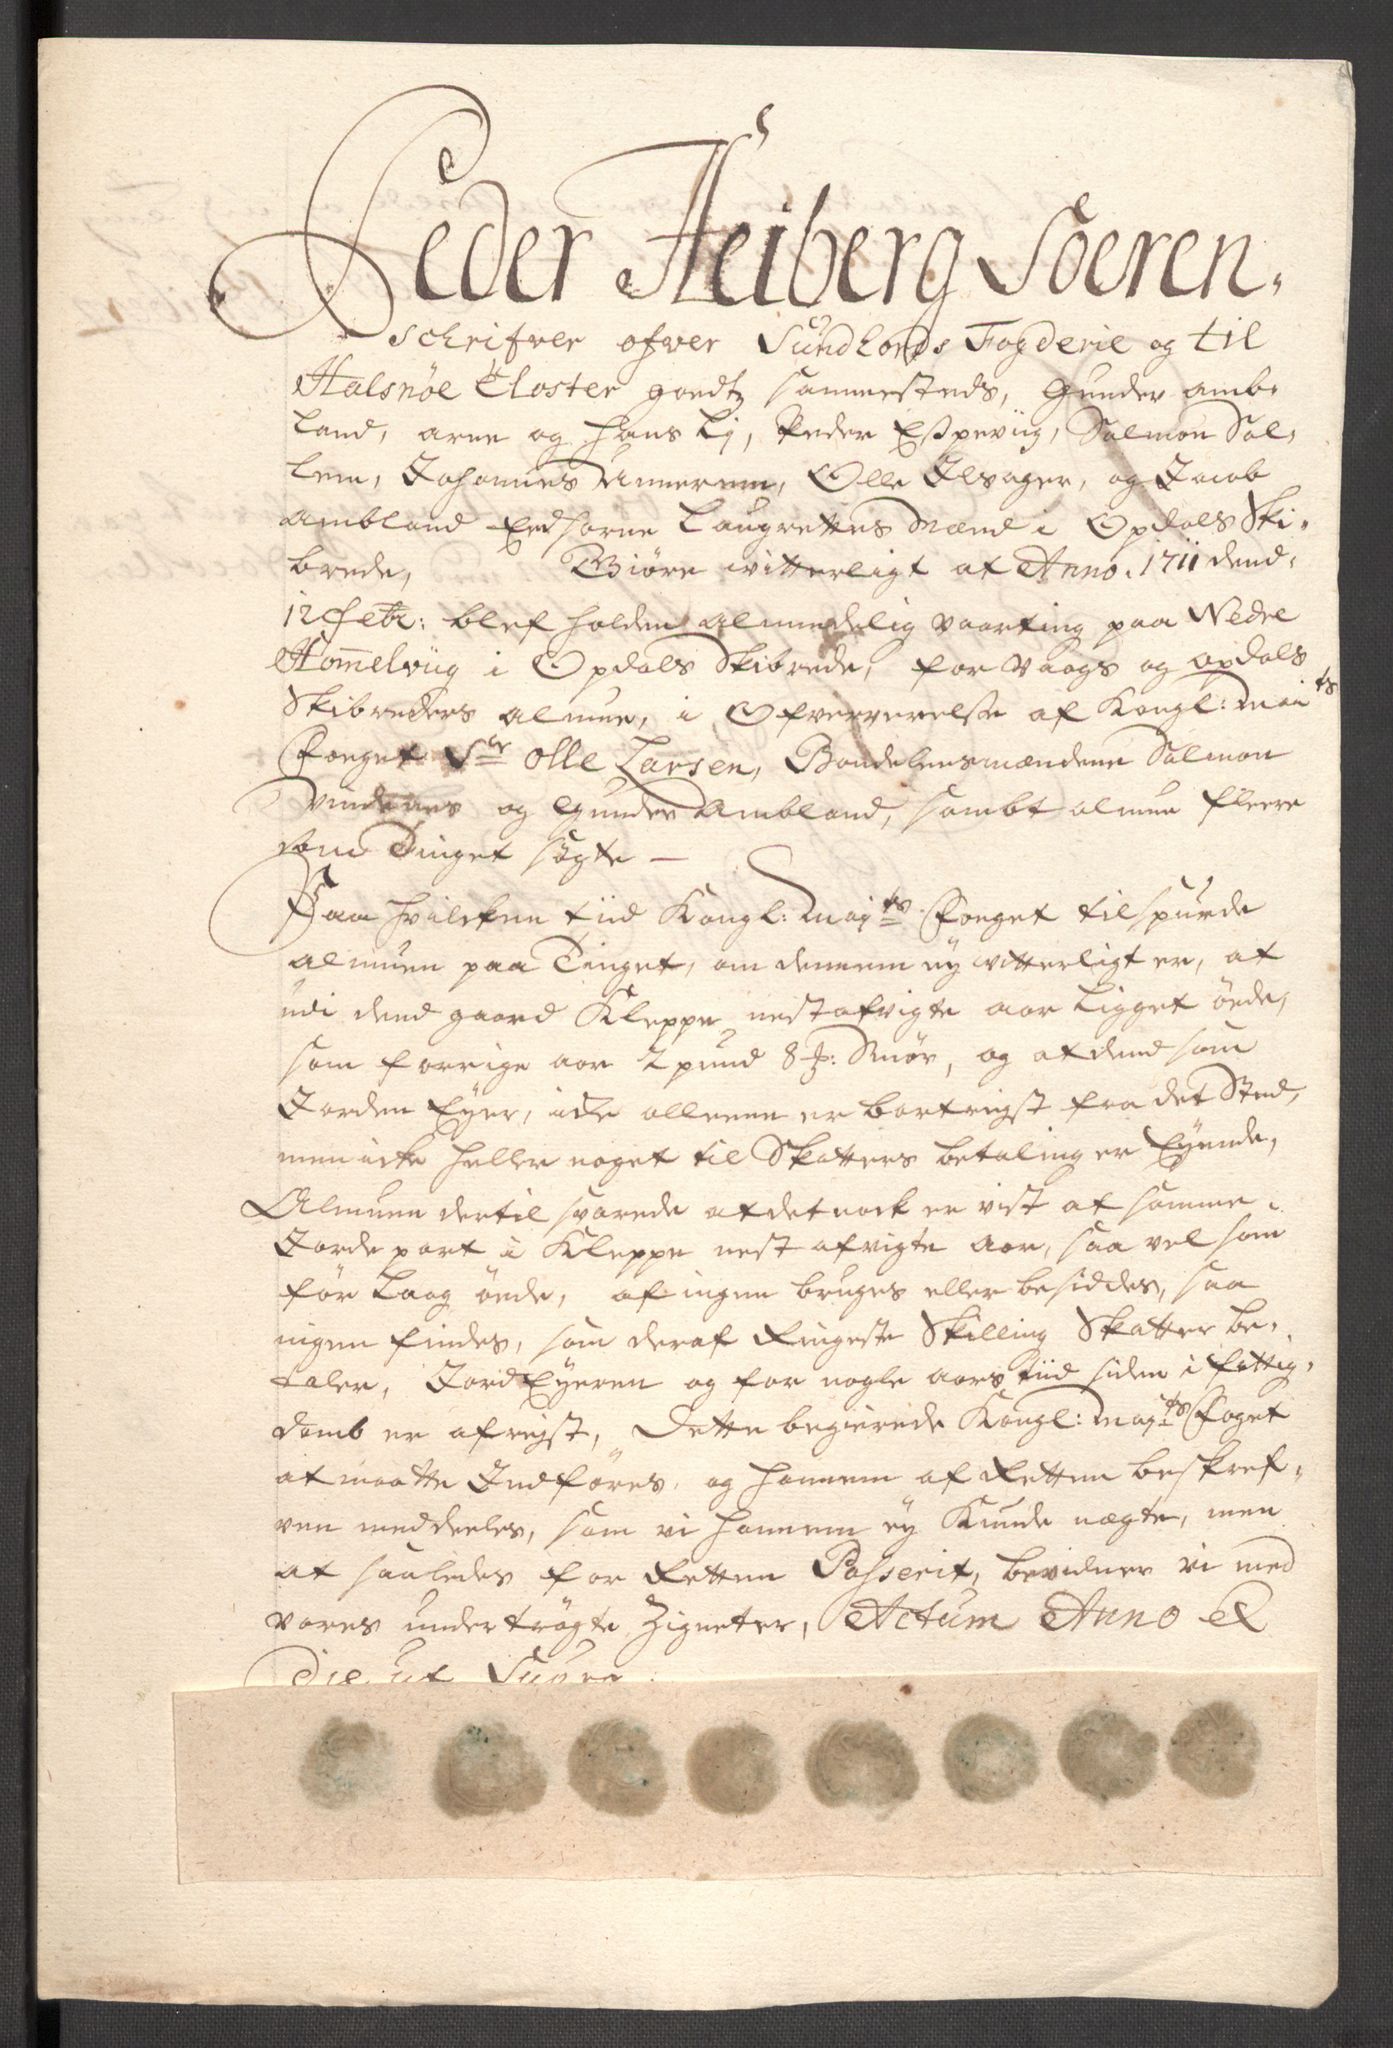 Peder Heiberg Soeren-
schrifver ofver Sundhords Fogderie og til
Halsnøe Closter goedtz sammesteds, Gunder amb-
land, arne og hans Lj, Peder Espeviig, Salmon Sal-
lem, Johannes Annerem, Olle Elsager, og Jacob
Ambland Eedsorne Laugrettes Mænd i Opdals Ski-
brede, Giøre witterligt at Anno. 1711 dend.
12 febr: blef holden almindelig vaarting paa Nedre
Hommelviig i Opdals Skibrede, for Waags og opdals
Skibreders almue, i Ofververelse af Kongl: Maits
Foeget Sr Olle Larsen, Bondelensmændene Salmon
vindenes og Gunder Ambland, sambt almue fleere
som Tinget søgte —
Paa hvilcken tiid Kongl: Maits Foeget tilspurde
almuen paa Tinget, om dennem ey witterligt er, at
udi dend gaard Kleppe nestafvigte aar Ligget øede,
som forrige aar 2 pund 8 ℔: Smør, og at dend som
Jorden Eyer, icke alleene er bortreigst fra det Sted,
men icke heller noget til Skatters betaling er Eyende,
Almuen dertil svarede at det nock er vist at samme
Jorde part i Kleppe nest afvigte aar, saa vel som
før Laag øede, af ingen bruges eller besiddes, saa
ingen findes, som deraf Ringeste Skilling Skatter be-
taler, JordEyeren og for nogle aars tiid siden i fattig-
domb er afreigst, Dette begierede Kongl: Maits Foget
at maatte Indføres, og hannem af Retten beskref-
ven meddeeles, som vi hannem ey Kunde nægte, men
at saaledes for Retten Passerit, bevidner vi med
vores undertrøgte Zigneter, Actum Anno &
Die ut Supra